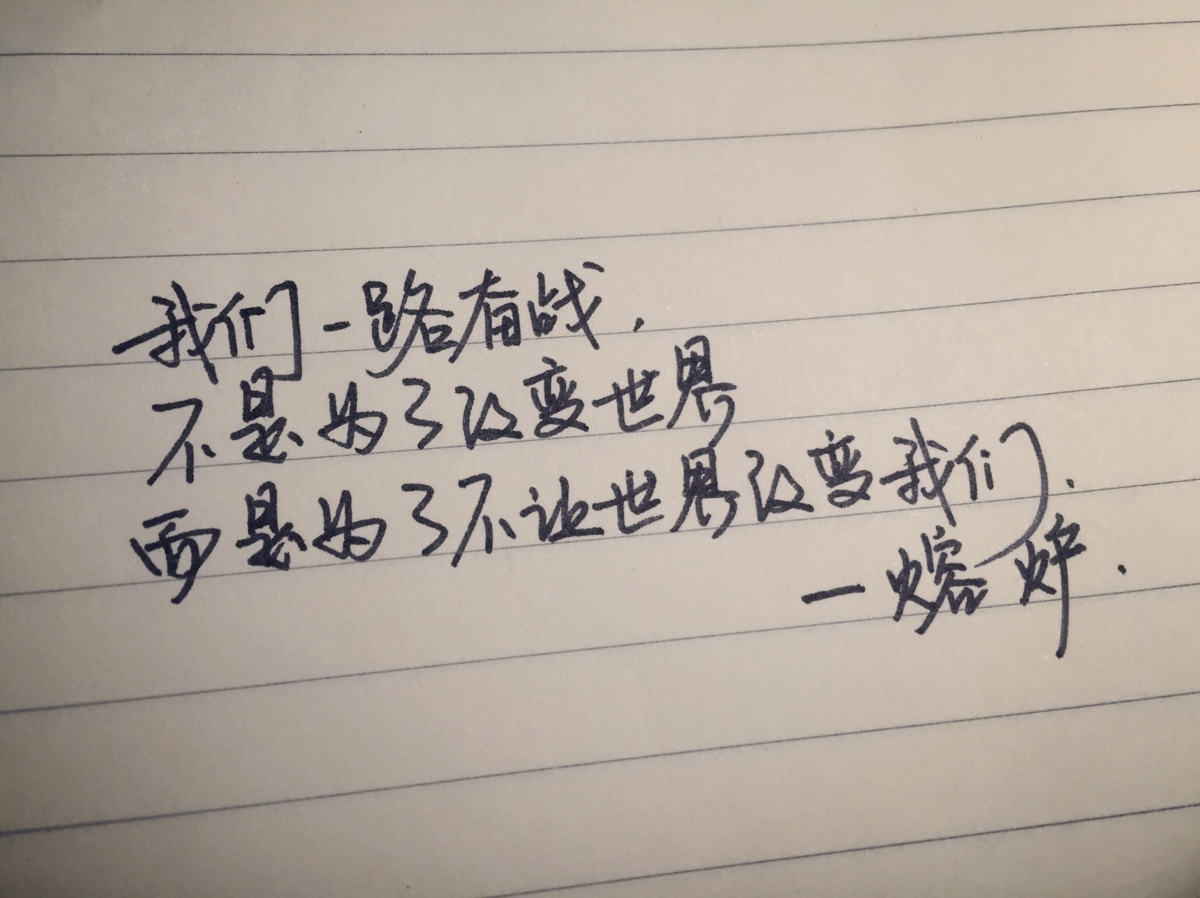 我们一路有战.
不是为了改变世界
而是为了不让世界改变我们.
一熔炉.